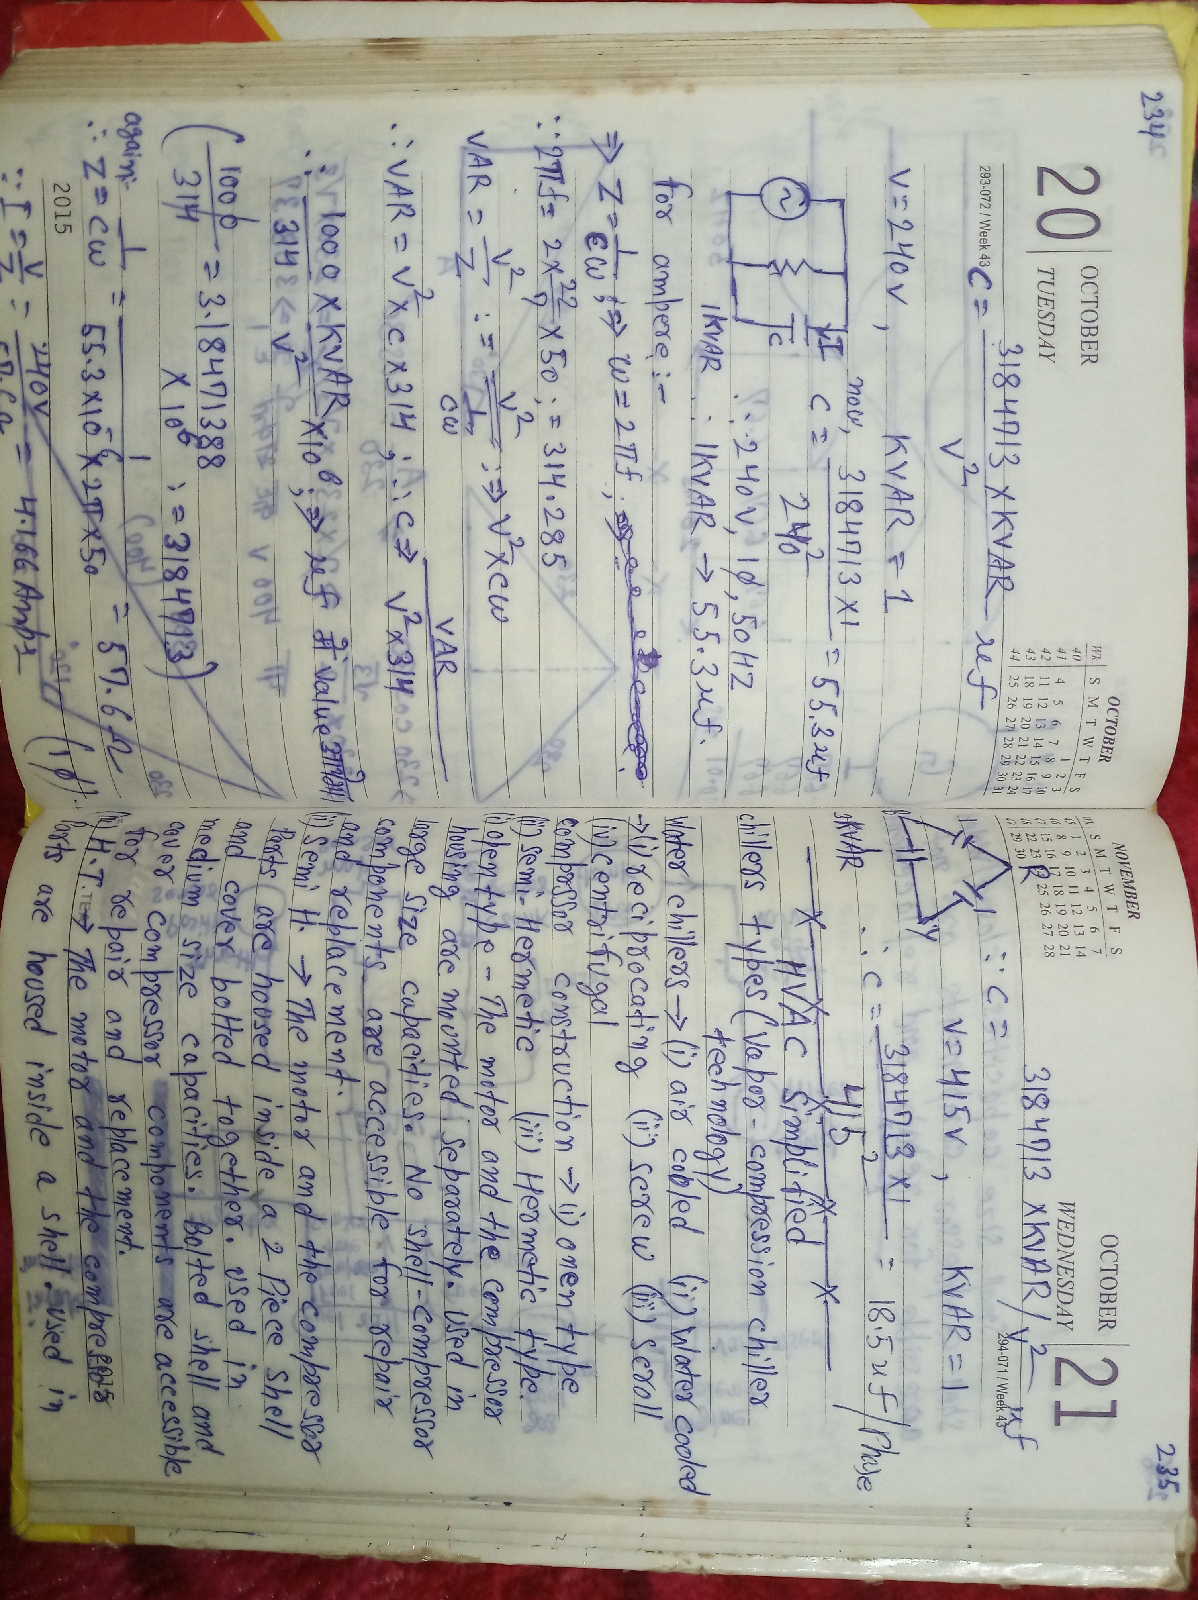 234
20 OCTOBER
TUESDAY
293-072 / Week 43
OCTOBER
WK S M T W T F S
40 1 2 3
41 4 5 6 7 8 9 10
42 11 12 13 14 15 16 17
43 18 19 20 21 22 23 24
44 25 26 27 28 29 30 31
C = 3184713 × KVAR / V² μf
V = 240V, KVAR = 1
now, C = 3184713 × 1 / 240² = 55.3 μf
I
C
∴ 240V, 1ϕ, 50HZ
1KVAR ∴ 1KVAR → 55.3 μf.
for ampere :-
⇒ Z = 1/cω ; ⇒ ω = 2πf ;
∴ 2πf = 2 × 22/7 × 50 ; = 314.285
VAR = V²/Z ; = V² / 1/cω ; ⇒ V² × cω
∴ VAR = V² × C × 314 ; ∴ C ⇒ VAR / V² × 314
∴ 1000 × KVAR × 10⁶ / 314 × V² ; ⇒ μf में value
( 1000 / 314 = 3.18471388 × 10⁶ ; = 3184713 )
again:
∴ Z = 1/cω = 1 / 55.3 × 10⁻⁶ × 2π × 50 = 57.6 Ω
∴ I = V/Z = 240V / 57.6Ω = 4.166 Amps (1ϕ).
2015
235
OCTOBER 21
WEDNESDAY
294-071 / Week 43
NOVEMBER
S M T W T F S
1 2 3 4 5 6 7
8 9 10 11 12 13 14
15 16 17 18 19 20 21
22 23 24 25 26 27 28
29 30
∴ C = 3184713 × KVAR / V² μf
V = 415V, KVAR = 1
1KVAR ∴ C = 3184713 × 1 / 415² = 18.5 μf / Phase
— X — X — X — X —
HVAC Simplified
chillers types (Vapor-compression chiller
technology)
Water chillers → (i) air cooled (ii) Water cooled
→ (i) reciprocating (ii) screw (iii) scroll
(iv) centrifugal
compressor construction → (i) open type
(ii) semi-Hermetic (iii) Hermetic type.
(i) open type - The motor and the compressor
housing are mounted separately. Used in
large size capacities. No shell-compressor
components are accessible for repair
and replacement.
(ii) semi H. → The motor and the compressor
Parts are housed inside a 2 Piece shell
and cover bolted together. used in
medium size capacities. Bolted shell and
cover compressor components are accessible
for repair and replacement.
(iii) H.T. → The motor and the compressor
Parts are housed inside a shell. Used in
2015